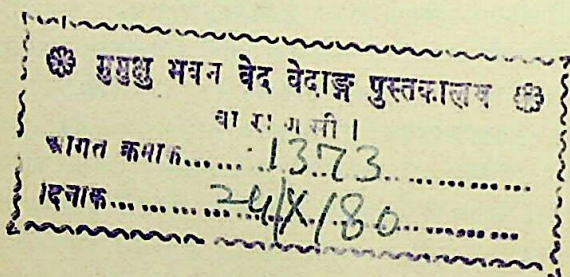 ❁ मुमुक्षु भवन वेद वेदाङ्ग पुस्तकालय ❁
वा रा ण सी ।
आगत क्रमाक...... 1373................
दिनाक............ 24/X/80............